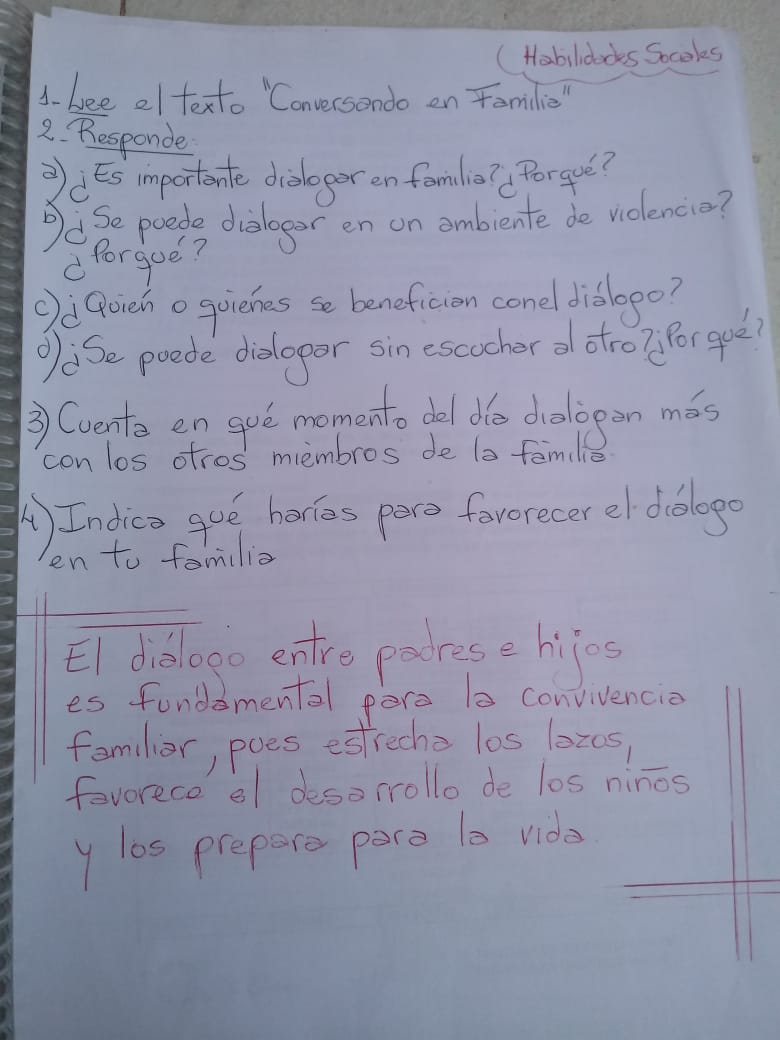 (Habilidades Sociales
1- Lee el texto "Conversando en Familia"
2- Responde:
a) ¿Es importante dialogar en familia? ¿Porqué?
b) ¿Se puede dialogar en un ambiente de violencia?
¿Porqué?
c) ¿Quién o quiénes se benefician con el diálogo?
d) ¿Se puede dialogar sin escuchar al otro? ¿Por qué?
3) Cuenta en qué momento del día dialogan más
con los otros miembros de la familia.
4) Indica qué harías para favorecer el diálogo
en tu familia
El diálogo entre padres e hijos
es fundamental para la convivencia
familiar, pues estrecha los lazos,
favorece el desarrollo de los niños
y los prepara para la vida.